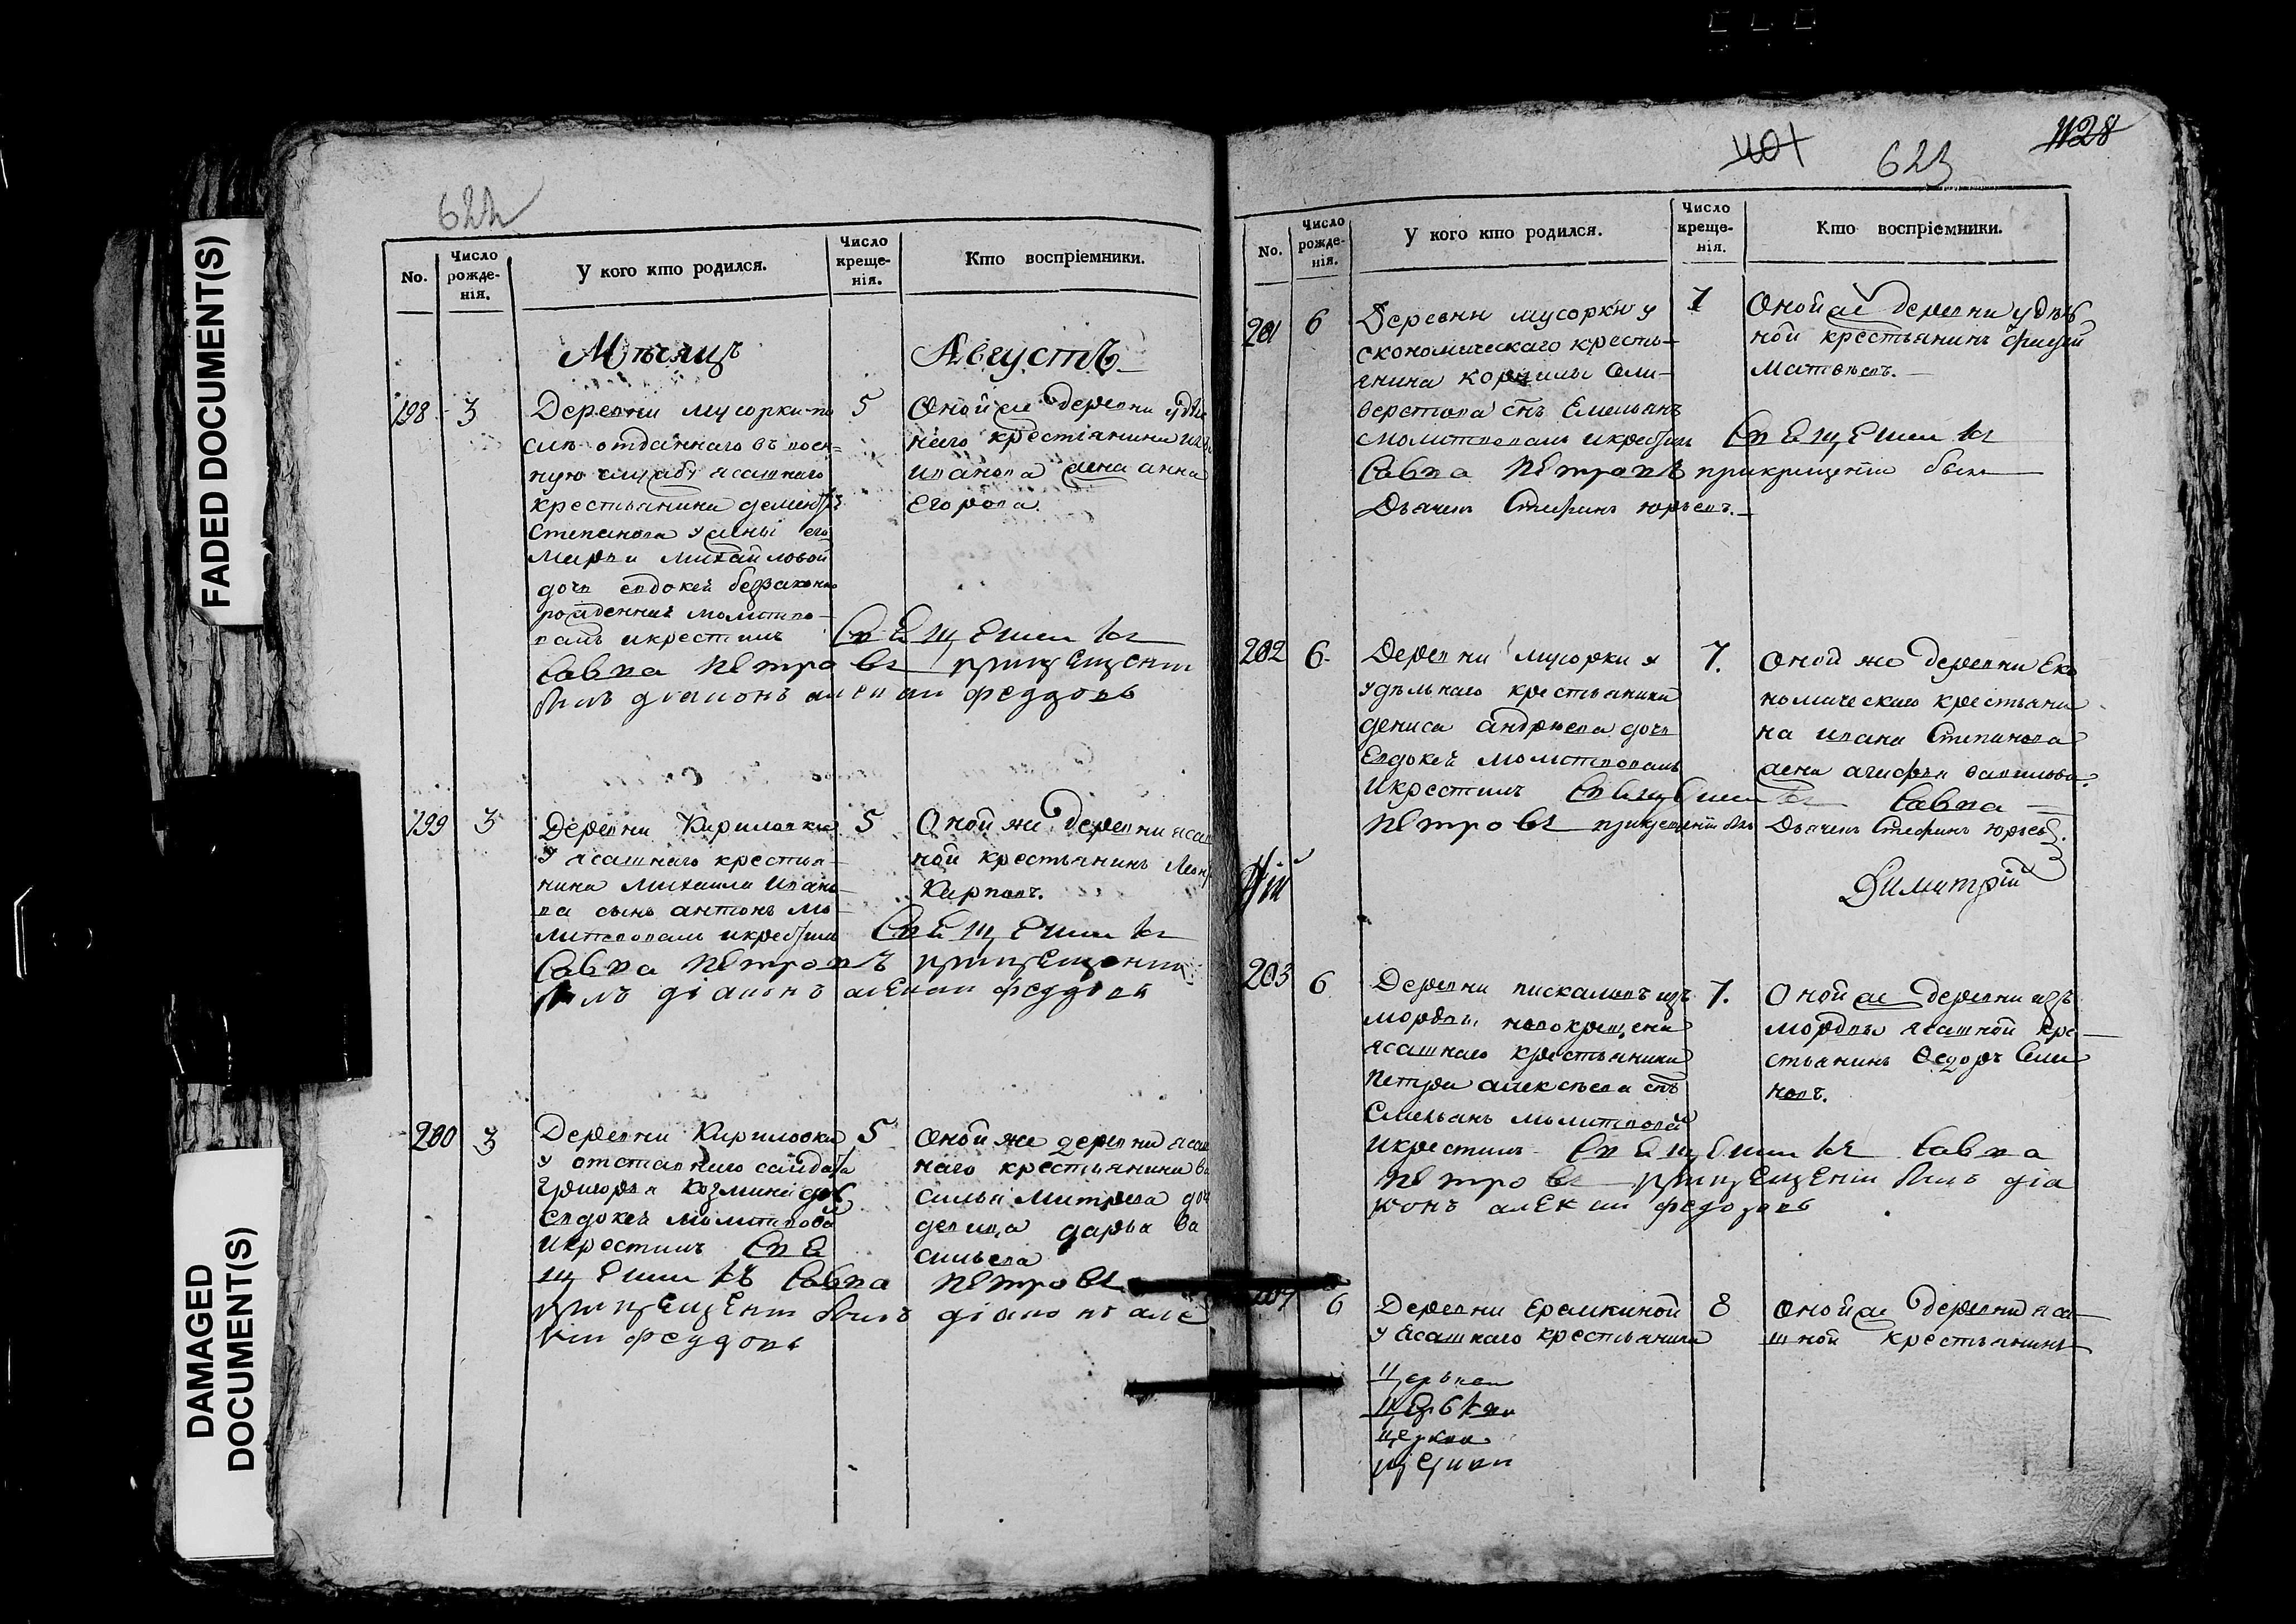 FADED DOCUMENT(S)
DAMAGED
DOCUMENT(S)
622
No.
Число рожде-нія.
У кого кто родился.
Число креще-нія.
Кто воспріемники.
Мѣсяцъ Августъ
198 3
Деревни Мусорки по
слѣ отданнаго въ воен-
ную службу ясашнаго
крестьянина
Степанова у жены его
Марьи Михайловой
дочь Евдокея беззаконно
рожденная молитво-
валъ и крестилъ Священникъ
Савва Петровъ при крещении
былъ діаконъ алексій Феддоровъ
5
Оной же деревни удѣль
наго крестьянина
иванова жена анна
Егорова.
199 3
Деревни Кириловки
у ясашнаго крестья-
нина Михаила Ивано-
ва сынъ антонъ мо-
литвовалъ и крестилъ Священникъ
Савва Петровъ при крещении
былъ діаконъ алексій Феддоровъ
5
Оной же деревни ясаш
ной крестьянинъ
Карповъ.
200 3
Деревни Кириловки
у отставнаго салдата
Григорья Козмина дочь
Евдокея молитвовалъ
и крестилъ Свя
щенникъ Савва Петровъ
при крещении былъ діаконъ але
ксій Феддоровъ
5
Оной же деревни ясаш
наго крестьянина Ва
силья Митрева дочь
девица дарья Ва
сильева
407 623 1128
No.
Число рожде-нія.
У кого кто родился.
Число креще-нія.
Кто воспріемники.
201 6
Деревни мусорки у
економическаго кресть-
янина Корнилы Сели-
верстова снъ Емельянъ
молитвовалъ и крестилъ Священникъ
Савва Петровъ при крещеніи былъ
Дьячекъ Стефанъ Юрьевъ.
7
Оной же деревни удѣль
ной крестьянинъ
Матвѣевъ.
202 6.
Деревни мусорки у
удѣльнаго крестьянина
дениса андрѣева дочь
Евдокея молитвовалъ
и крестилъ Священникъ Савва
Петровъ при крещеніи былъ Дьячекъ Стефанъ Юрьевъ.
7.
Оной же деревни Еко
номическаго крестьяни
на ивана Степанова
жена агафья
Димитрій
203 6
Деревни пискаловъ изъ
мордвы новокрещена
ясашнаго крестьянина
Петра алексѣева снъ
Емельянъ молитвовалъ
и крестилъ Священникъ Савва
Петровъ при крещеніи былъ діа
конъ алексій Федоровъ
7.
Оной же деревни изъ
мордвы ясашной кре-
стьянинъ Ѳедоръ Семе
новъ.
204 6
Деревни Еремкиной
у ясашнаго крестьянина
8
Оной же деревни яса
шной крестьянинъ
Церькви
Церькви
церкви